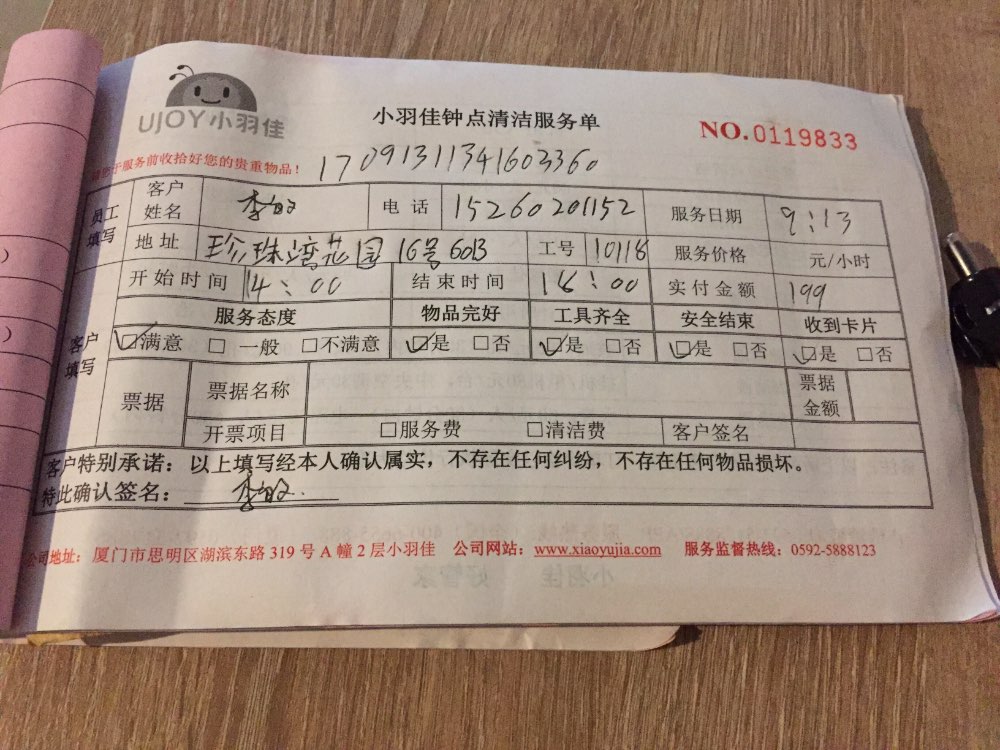 UJOY小羽佳
小羽佳钟点清洁服务单
NO.0119833
于服务前收拾好您的贵重物品！
17091311341603360
员工填写
客户姓名 电话 15260201152 服务日期 9:13
地址 珍珠湾花园 16号601B 工号 10118 服务价格 元/小时
客户填写
开始时间 14:00 结束时间 16:00 实付金额 199
服务态度 物品完好 工具齐全 安全结束 收到卡片
☑满意 □一般 □不满意 ☑是 □否 ☑是 □否 ☑是 □否 ☑是 □否
票据 票据名称 票据金额
开票项目 □服务费 □清洁费 客户签名
客户特别承诺：以上填写经本人确认属实，不存在任何纠纷，不存在任何物品损坏。
特此确认签名：
公司地址：厦门市思明区湖滨东路 319 号 A 幢 2 层小羽佳 公司网站：www.xiaoyujia.com 服务监督热线：0592-5888123